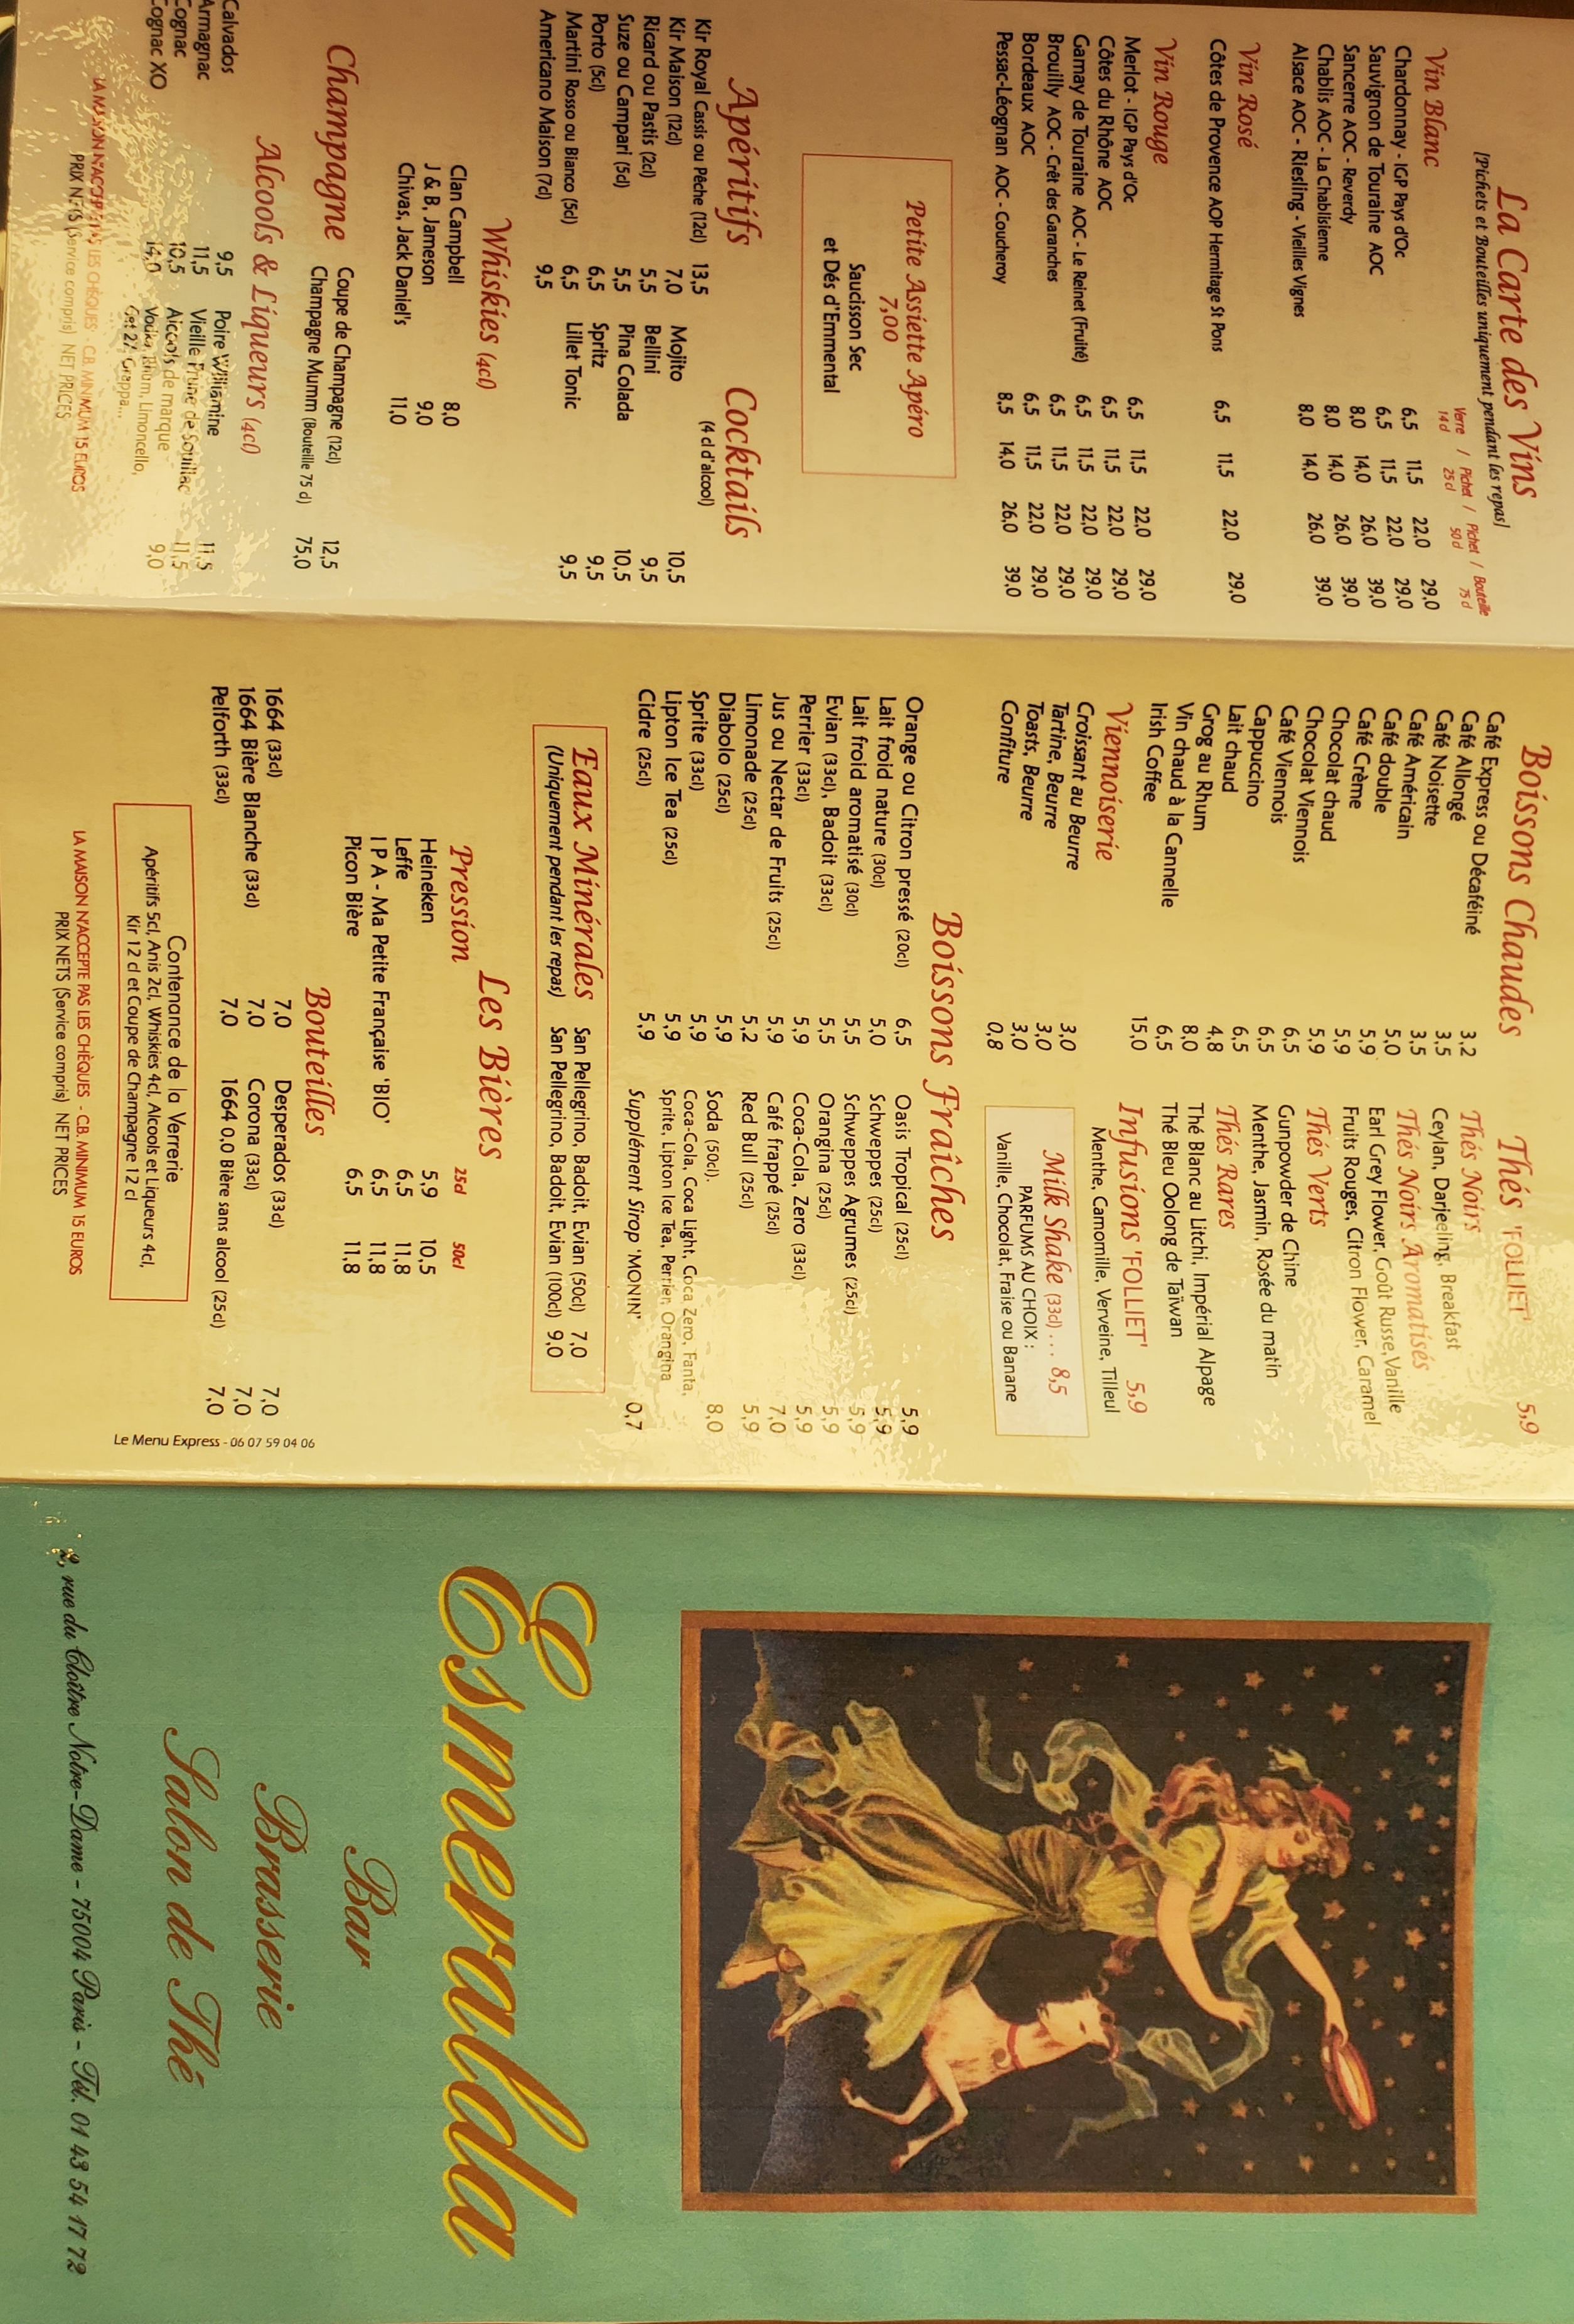 La Carte des Vins
[Pichets et Bouteilles uniquement pendant les repas]
Verre / Pichet / Pichet / Bouteille
14cl 25cl 50cl 75cl
Vin Blanc
Chardonnay - IGP Pays d'Oc 6,5 11,5 22,0 29,0
Sauvignon de Touraine AOC 6,5 11,5 22,0 29,0
Sancerre AOC - Reverdy 8,0 14,0 26,0 39,0
Chablis AOC - La Chablisienne 8,0 14,0 26,0 39,0
Alsace AOC - Riesling - Vieilles Vignes 8,0 14,0 26,0 39,0
Vin Rosé
Côtes de Provence AOP Hermitage St Pons 6,5 11,5 22,0 29,0
Vin Rouge
Merlot - IGP Pays d'Oc 6,5 11,5 22,0 29,0
Côtes du Rhône AOC 6,5 11,5 22,0 29,0
Gamay de Touraine AOC - Le Reinet (Fruité) 6,5 11,5 22,0 29,0
Brouilly AOC - Crêt des Garanches 6,5 11,5 22,0 29,0
Bordeaux AOC 6,5 11,5 22,0 29,0
Pessac-Léognan AOC - Coucheroy 8,5 14,0 26,0 39,0
Petite Assiette Apéro
7,00
Saucisson Sec
et Dés d'Emmental
Apéritifs
Kir Royal Cassis ou Pêche (12cl) 13,5
Kir Maison (12cl) 7,0
Ricard ou Pastis (2cl) 5,5
Suze ou Campari (5cl) 5,5
Porto (5cl) 6,5
Martini Rosso ou Bianco (5cl) 6,5
Americano Maison (7cl) 9,5
Cocktails
(4 cl d'alcool)
Mojito 10,5
Bellini 9,5
Pina Colada 10,5
Spritz 9,5
Lillet Tonic 9,5
Whiskies (4cl)
Clan Campbell 8,0
J & B, Jameson 9,0
Chivas, Jack Daniel's 11,0
Champagne
Coupe de Champagne (12cl) 12,5
Champagne Mumm (Bouteille 75 cl) 75,0
Alcools & Liqueurs (4cl)
Calvados 9,5
Armagnac 11,5
Cognac 10,5
Cognac XO 14,0
Poire Williamine 11,5
Vieille Prune de Souillac 11,5
Alcools de marque 9,0
Vodka, Rhum, Limoncello,
Get 27, Grappa...
LA MAISON N'ACCEPTE PAS LES CHÈQUES - C.B. MINIMUM 15 EUROS
PRIX NETS (Service compris) NET PRICES
Boissons Chaudes
Café Express ou Décaféiné 3,2
Café Allongé 3,5
Café Noisette 3,5
Café Américain 5,0
Café double 5,9
Café Crème 5,9
Chocolat chaud 5,9
Chocolat Viennois 6,5
Café Viennois 6,5
Cappuccino 6,5
Lait chaud 4,8
Grog au Rhum 8,0
Vin chaud à la Cannelle 6,5
Irish Coffee 15,0
Viennoiserie
Croissant au Beurre 3,0
Tartine, Beurre 3,0
Toasts, Beurre 3,0
Confiture 0,8
Thés 'FOLLIET' 5,9
Thés Noirs
Ceylan, Darjeeling, Breakfast
Thés Noirs Aromatisés
Earl Grey Flower, Goût Russe, Vanille
Fruits Rouges, Citron Flower, Caramel
Thés Verts
Gunpowder de Chine
Menthe, Jasmin, Rosée du matin
Thés Rares
Thé Blanc au Litchi, Impérial Alpage
Thé Bleu Oolong de Taïwan
Infusions 'FOLLIET' 5,9
Menthe, Camomille, Verveine, Tilleul
Milk Shake (33cl) ... 8,5
PARFUMS AU CHOIX :
Vanille, Chocolat, Fraise ou Banane
Boissons Fraîches
Orange ou Citron pressé (20cl) 6,5
Lait froid nature (30cl) 5,0
Lait froid aromatisé (30cl) 5,5
Evian (33cl), Badoit (33cl) 5,5
Perrier (33cl) 5,9
Jus ou Nectar de Fruits (25cl) 5,9
Limonade (25cl) 5,2
Diabolo (25cl) 5,9
Sprite (33cl) 5,9
Lipton Ice Tea (25cl) 5,9
Cidre (25cl) 5,9
Oasis Tropical (25cl) 5,9
Schweppes (25cl) 5,9
Schweppes Agrumes (25cl) 5,9
Orangina (25cl) 5,9
Coca-Cola, Zero (33cl) 5,9
Café frappé (25cl) 7,0
Red Bull (25cl) 5,9
Soda (50cl). 8,0
Coca-Cola, Coca Light, Coca Zero, Fanta,
Sprite, Lipton Ice Tea, Perrier, Orangina
Supplément Sirop 'MONIN' 0,7
Eaux Minérales
(Uniquement pendant les repas)
San Pellegrino, Badoit, Evian (50cl) 7,0
San Pellegrino, Badoit, Evian (100cl) 9,0
Les Bières
Pression 25cl 50cl
Heineken 5,9 10,5
Leffe 6,5 11,8
I P A - Ma Petite Française 'BIO' 6,5 11,8
Picon Bière 6,5 11,8
Bouteilles
1664 (33cl) 7,0
1664 Bière Blanche (33cl) 7,0
Pelforth (33cl) 7,0
Desperados (33cl) 7,0
Corona (33cl) 7,0
1664 0.0 Bière sans alcool (25cl) 7,0
Contenance de la Verrerie
Apéritifs 5cl, Anis 2cl, Whiskies 4cl, Alcools et Liqueurs 4cl,
Kir 12 cl et Coupe de Champagne 12 cl
LA MAISON N'ACCEPTE PAS LES CHÈQUES - C.B. MINIMUM 15 EUROS
PRIX NETS (Service compris) NET PRICES
Le Menu Express - 06 07 59 04 06
Esmeralda
Bar
Brasserie
Salon de Thé
2, rue du Cloître Notre-Dame - 75004 Paris - Tél. 01 43 54 17 72